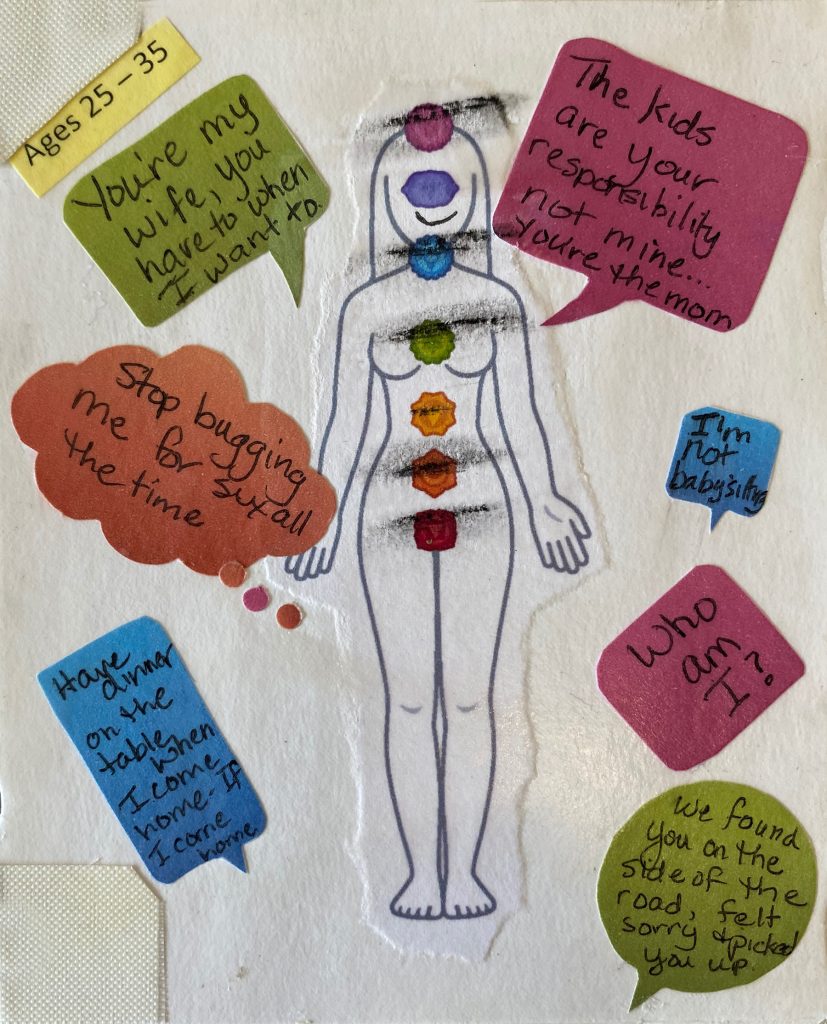 Ages 25 – 35
You're my
wife, you
have to when
I want to.
The kids
are your
responsibility
not mine...
You're the mom
Stop bugging
me for sex all
the time
I'm
not
babysitting
Have
dinner
on the
table when
I come
home- If
I come
home
Who
am
I?
We found
you on the
side of the
road, felt
sorry & picked
you up.